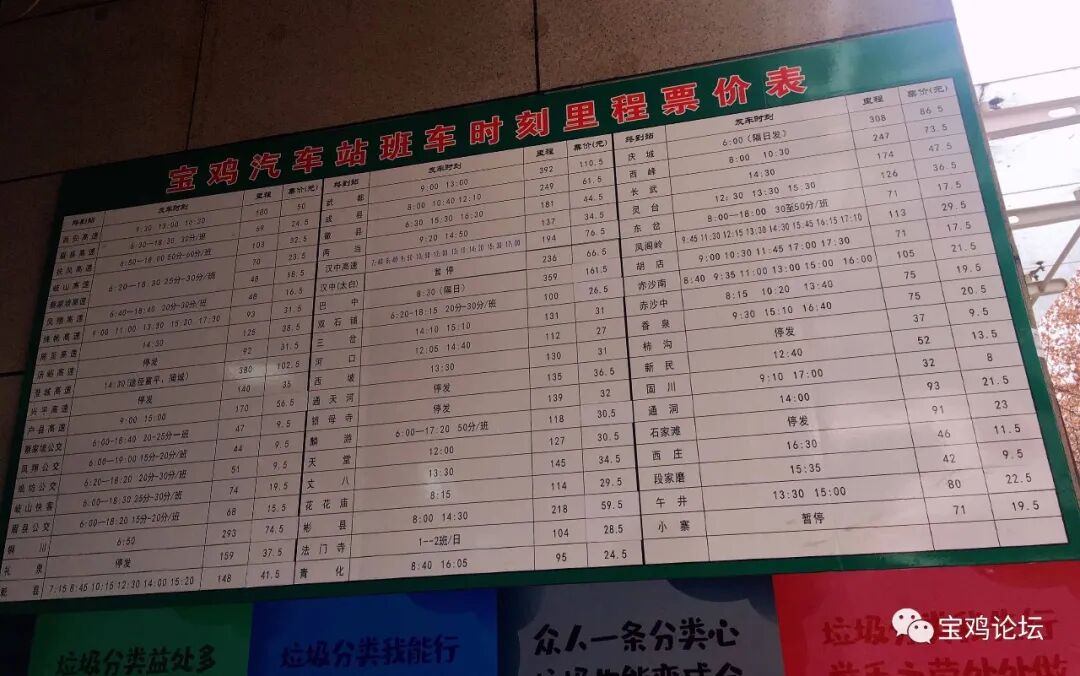 宝鸡汽车站班车时刻里程票价表
终到站 发车时刻 里程 票价(元)
西安高速 9:30 13:00 16:30 180 50
眉县高速 6:30—18:30 30分/班 69 24.5
扶风高速 6:50—18:00 50分-60分/班 103 32.5
岐山高速 6:20—18:30 25分-30分/班 70 23.5
蔡家坡高速 48 18.5
凤翔高速 6:40—18:40 20分-30分/班 48 16.5
高速 9:00 11:00 13:30 15:20 17:30 93 31.5
周至高速 14:30 125 38.5
高速 停发 92 31.5
澄城高速 14:30(途径富平、蒲城) 380 102.5
兴平高速 停发 140 35
户县高速 9:00 15:00 170 56.5
蔡家坡公交 6:00-18:40 20-25分一班 47 9.5
凤翔公交 6:00—19:00 15分-20分/班 44 9.5
公交 6:20-18:20 20分-30分/班 51 9.5
岐山快客 6:00—18:30 25分-30分/班 74 19.5
眉县公交 6:00—18:20 15分-20分/班 68 15.5
铜川 6:50 293 74.5
礼泉 停发 159 37.5
乾县 7:15 8:45 10:15 12:30 14:00 15:20 148 41.5
终到站 发车时刻 里程 票价(元)
武都 9:00 13:00 392 110.5
成县 8:00 10:40 12:10 249 61.5
徽县 6:30 15:30 16:30 181 44.5
两当 9:20 14:50 137 34.5
汉中高速 7:40 8:40 9:50 10:50 12:00 13:10 14:20 15:30 17:00 194 76.5
汉中(太白) 暂停 236 66.5
巴中 8:30(隔日) 359 161.5
双石铺 6:20-18:15 20分-30分/班 100 26.5
三岔 14:10 15:10 131 31
河口 12:05 14:40 112 27
西坡 13:30 130 31
通天河 停发 135 36.5
母寺 停发 139 32
麟游 6:00—17:20 50分/班 118 30.5
天堂 12:00 127 30.5
丈八 13:30 145 34.5
花花庙 8:15 114 29.5
彬县 8:00 14:30 218 59.5
法门寺 1--2班/日 104 28.5
青化 8:40 16:05 95 24.5
终到站 发车时刻 里程 票价(元)
庆城 6:00(隔日发) 308 86.5
西峰 8:00 10:30 247 73.5
长武 14:30 174 47.5
灵台 12:30 13:30 15:30 126 36.5
东岔 8:00—18:00 30至50分/班 71 17.5
凤阁岭 9:45 11:30 12:15 13:30 14:30 15:45 16:15 17:10 113 29.5
胡店 9:00 10:30 11:45 17:00 17:30 71 17.5
赤沙南 8:40 9:35 11:00 13:00 15:00 16:00 105 21.5
赤沙中 8:15 10:20 13:40 75 19.5
香泉 9:30 15:10 16:40 75 20.5
柿沟 停发 37 9.5
新民 12:40 52 13.5
固川 9:10 17:00 32 8
通洞 14:00 93 21.5
石家滩 停发 91 23
西庄 16:30 46 11.5
段家磨 15:35 42 9.5
午井 13:30 15:00 80 22.5
小寨 暂停 71 19.5
垃圾分类益处多
垃圾分类我能行
众人一条分类心
垃圾分类我能行
宝鸡论坛